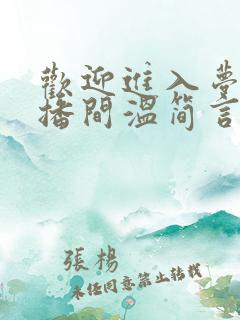 歡迎進入夢
播間溫简言
張楊
未经同意禁止转载